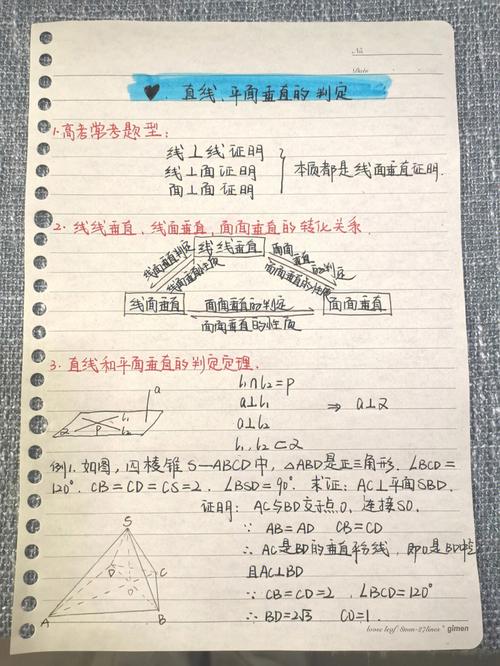 No.
Date
♥ 直线、平面垂直的判定
1.高考常考题型:
线⊥线证明
线⊥面证明
面⊥面证明
本质都是线面垂直证明.
2.线线垂直、线面垂直、面面垂直的转化关系.
线线垂直
线面垂直判定
线面垂直的性质
面面垂直的判定
面面垂直的性质
线面垂直
面面垂直的判定
面面垂直的性质
面面垂直
3.直线和平面垂直的判定定理.
a
l₁
P
l₂
α
l₁∩l₂=P
a⊥l₁
a⊥l₂
l₁,l₂⊂α
⇒ a⊥α
例1.如图,四棱锥S—ABCD中,△ABD是正三角形.∠BCD=
120°.CB=CD=CS=2.∠BSD=90°.求证:AC⊥平面SBD.
证明:AC与BD交于点O,连接SO.
∵ AB=AD CB=CD
∴ AC是BD的垂直平分线,即O是BD中点
且AC⊥BD
∵ CB=CD=2,∠BCD=120°
∴ BD=2√3 CO=1.
S
D
C
O
A
B
loose leaf 8mm×27lines gimen